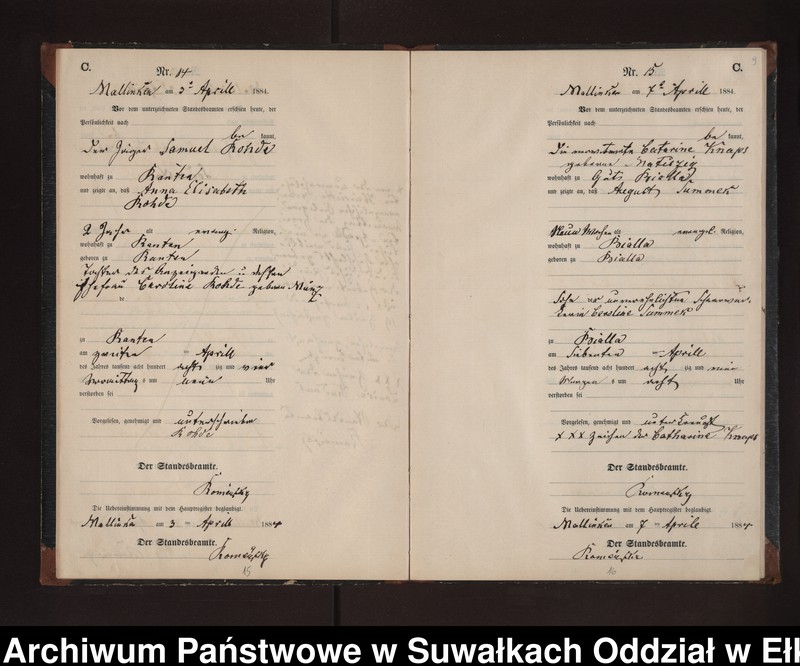 C.
Nr. 14
Mallinken am 3ᵗ April 1884.
Vor dem unterzeichneten Standesbeamten erschien heute, der
Persönlichkeit nach
be kannt,
der Samuel Rohde
wohnhaft zu Kanten
und zeigte an, daß Anna Elisabeth
Rohde
2 Jahre alt evang. Religion,
wohnhaft zu Kanten
geboren zu Kanten
Tochter des Anzeigenden u. dessen
Ehefrau Caroline Rohde geboren
zu Kanten
am zweiten April
des Jahres tausend acht hundert acht zig und vier
Vormittag s um neun Uhr
verstorben sei
Vorgelesen, genehmigt und unterschrieben
Rohde
Der Standesbeamte.
Die Uebereinstimmung mit dem Hauptregister beglaubigt.
Mallinken am 3 April 1884
Der Standesbeamte.
15
C.
9
Nr. 15
Mallinken am 7ᵗ April 1884
Vor dem unterzeichneten Standesbeamten erschien heute, der
Persönlichkeit nach
be kannt,
die Catarine Knaps
geborene
wohnhaft zu Guts Bialla
und zeigte an, daß August Summek
Neun Wochen alt evangl. Religion,
wohnhaft zu Bialla
geboren zu Bialla
Sohn der unverehelichten
Caroline Summek
zu Bialla
am Siebenten April
des Jahres tausend acht hundert acht zig und vier
Morgen s um acht Uhr
verstorben sei
Vorgelesen, genehmigt und unterkreuzt
X X X Zeichen der Catharine Knaps
Der Standesbeamte.
Die Uebereinstimmung mit dem Hauptregister beglaubigt.
Mallinken am 7 April 1884
Der Standesbeamte.
16
Archiwum Państwowe w Suwałkach Oddział w Eł